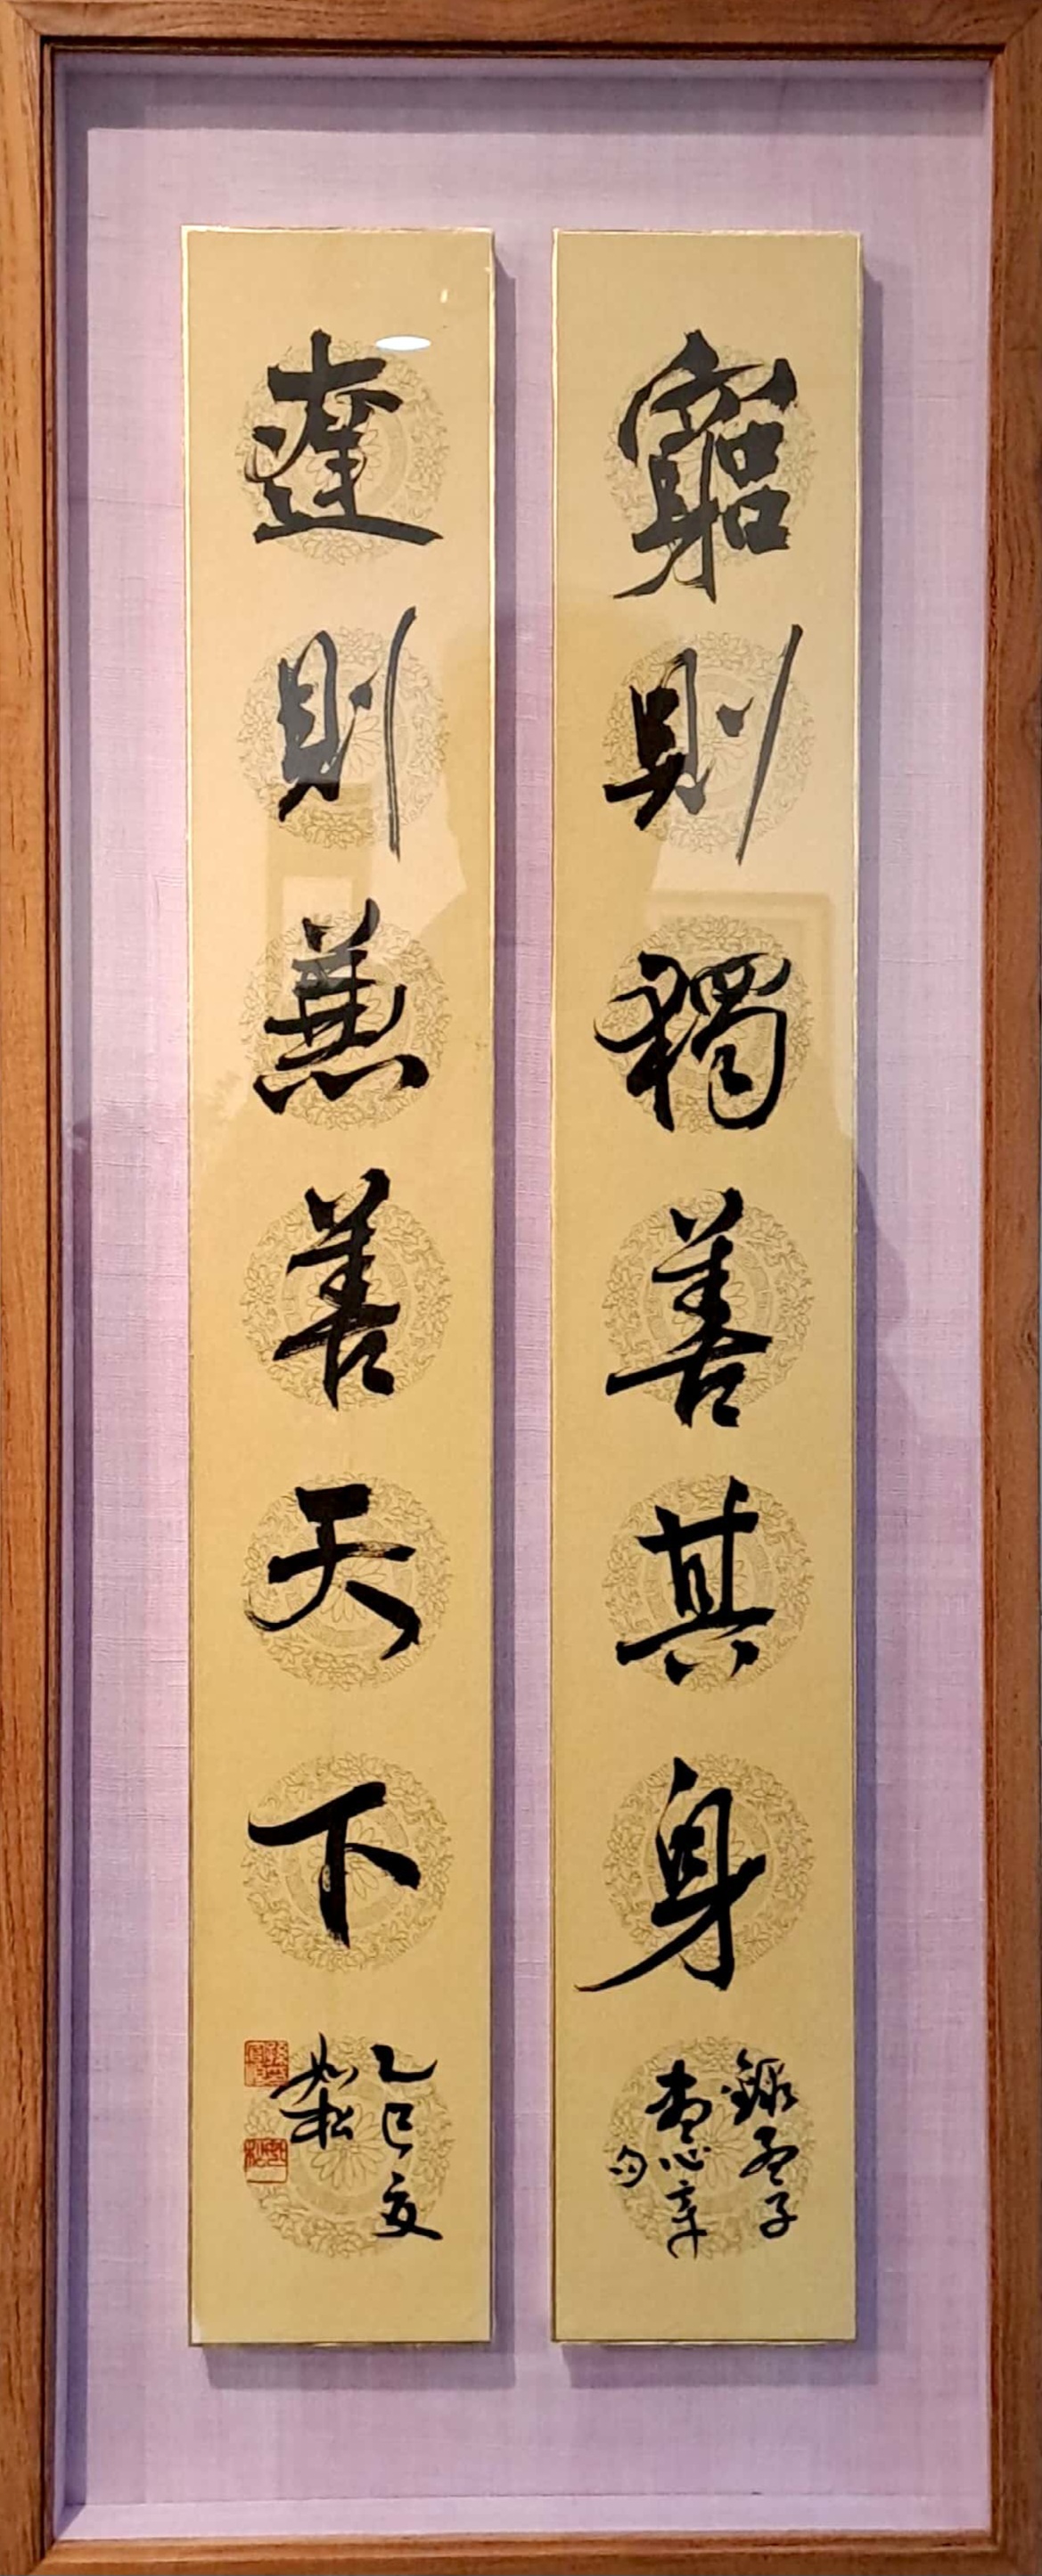 窮則獨善其身
錄孟子
盡心章
句
達則兼善天下
乙巳夏
如松